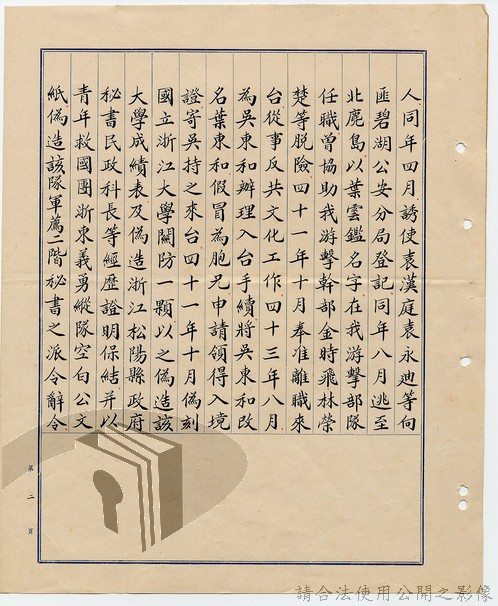 人同年四月誘使袁漢庭袁永迪等向
匪碧湖公安分局登記同年八月逃至
北鹿島以葉雲鑑名字在我游擊部隊
任職曾協助我游擊幹部金時飛林榮
楚等脫險四十一年十月奉准離職來
台從事反共文化工作四十三年八月
為吳東和辦理入台手續將吳東和改
名葉東和假冒為胞兄申請領得入境
證寄吳持之來台四十一年十月偽刻
國立浙江大學關防一顆以之偽造該
大學成績表及偽造浙江松陽縣政府
秘書民政科長等經歷證明保結并以
青年救國團浙東義勇縱隊空白公文
紙偽造該隊軍薦二階秘書之派令辭令
第二頁
請合法使用公開之影像